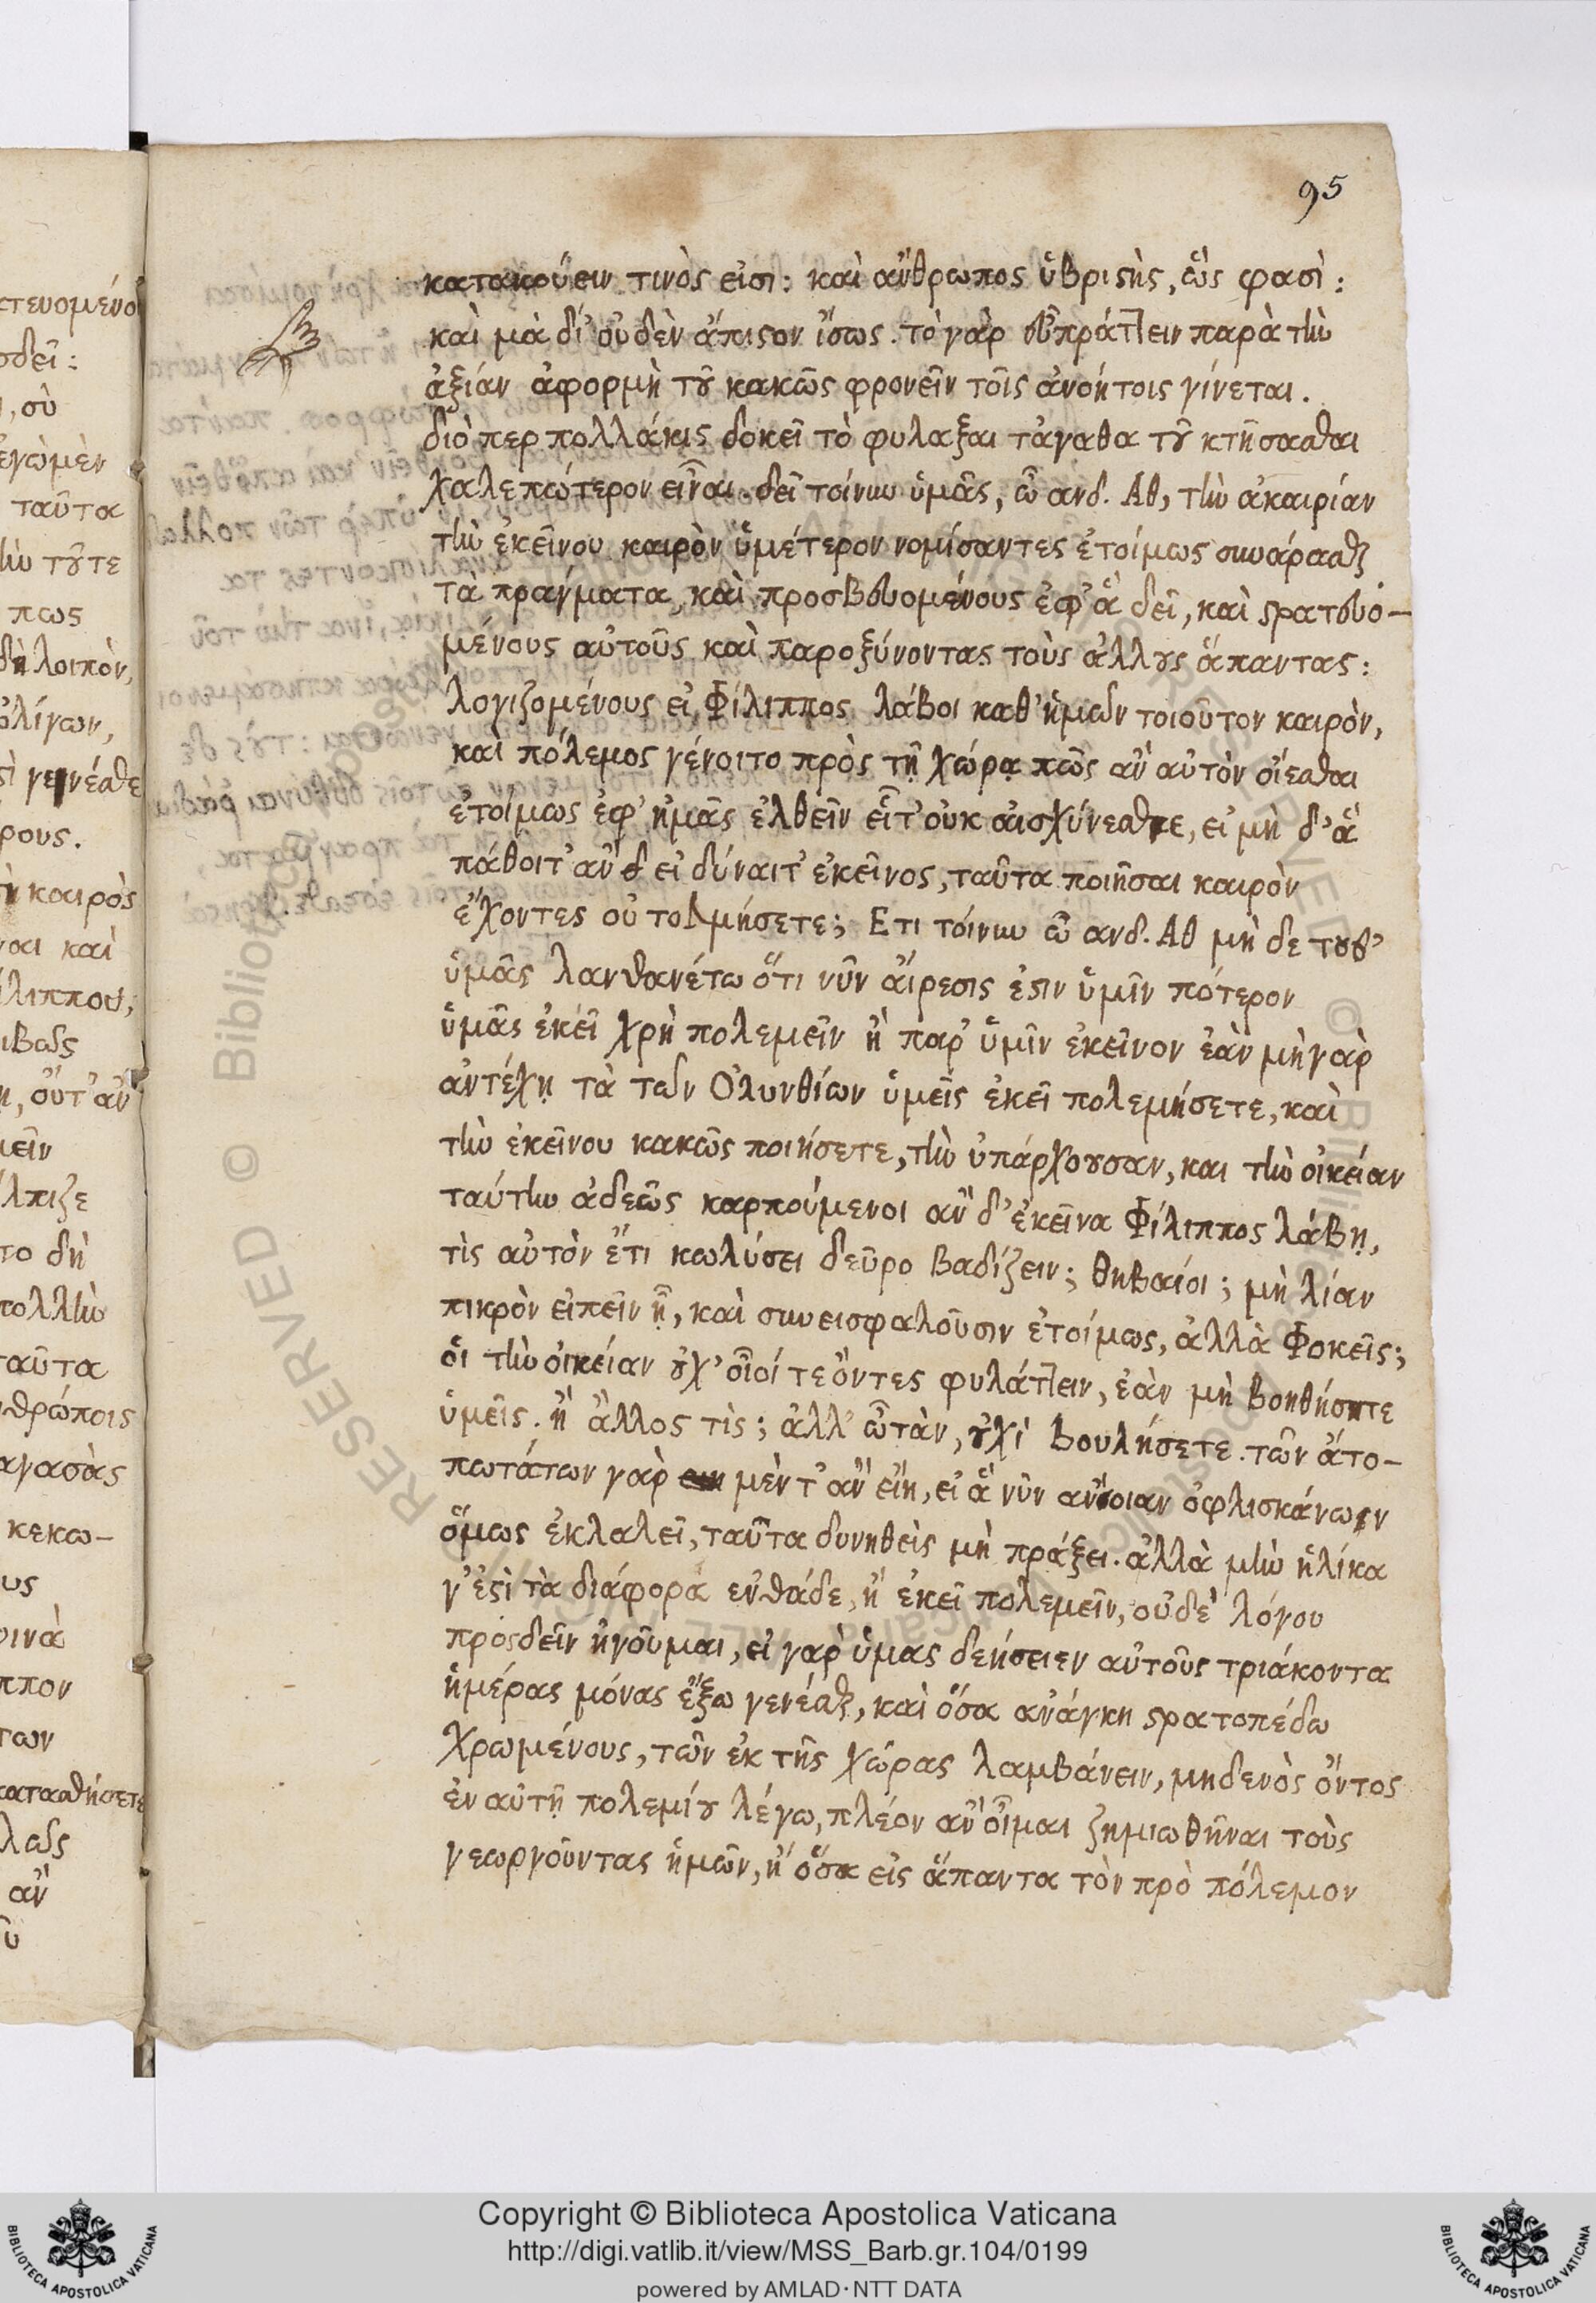 95
κατακούειν τινὸς εἰσι: καὶ ἄνθρωπος ὑβριϛὴς, ὥς φασὶ:
καὶ μὰ δί' οὐδὲν ἄπιϛον ἴσως. τὸ γὰρ εὖ πράττειν παρὰ τὴν
ἀξίαν ἀφορμὴ τοῦ κακῶς φρονεῖν τοῖς ἀνοήτοις γίνεται.
διὸ περ πολλάκις δοκεῖ τὸ φυλαξαι τἀγαθα τοῦ κτήσασθαι
χαλεπώτερον εἶναι. δεῖ τοίνυν ὑμᾶς, ὦ ανδ. Αθ, τὴν ἀκαιρίαν
τὴν ἐκεῖνου καιρὸν ὑμέτερον νομίσαντες ἑτοίμως συνάρασθαι
τὰ πραγματα, καὶ προσβευομένους ἐφ' ἃ δεῖ, καὶ ϛρατευο-
μένους αὐτοῦς καὶ παροξύνοντας τοὺς ἄλλους ἅπαντας:
λογιζομένους εἰ Φίλιππος λάβοι καθ' ἡμῶν τοιοῦτον καιρὸν,
καὶ πόλεμος γένοιτο πρὸς τῇ χώρᾳ πῶς ἂν αὐτὸν οἴεσθαι
ἑτοίμως ἐφ' ἡμᾶς ἐλθεῖν εἶτ' οὐκ αἰσχύνεσθε, εἰ μὴ δ' ἃ
πάθοιτ' ἂν εἰ δύναιτ' ἐκεῖνος, ταῦτα ποιῆσαι καιρὸν
ἔχοντες οὐ τολμήσετε; Ετι τόινυν ὦ ανδ. Αθ μὴ δε τουθ'
ὑμᾶς λανθανέτω ὅτι νῦν ἅιρεσις ἐϛιν ὑμῖν πότερον
ὑμᾶς ἐκεῖ χρὴ πολεμεῖν ἢ παρ' ὑμῖν ἐκεῖνον ἐὰν μὴ γὰρ
ἀντέχῃ τὰ τῶν Ολυνθίων ὑμεῖς ἐκεῖ πολεμήσετε, καὶ
τὴν ἐκεῖνου κακῶς ποιήσετε, τὴν ὑπάρχουσαν, και τὴν οἰκείαν
ταύτην ἀδεῶς καρπούμενοι ἂν δ' ἐκεῖνα Φίλιππος λάβῃ,
τὶς αὐτὸν ἔτι κωλύσει δεῦρο βαδίζειν; θηβαίοι; μὴ λίαν
πικρὸν εἰπεῖν ᾖ, καὶ συνεισφαλοῦσιν ἑτοίμως, ἀλλὰ Φοκεῖς;
ὅι τὴν οἰκείαν οὐχ' οἷοί τε ὄντες φυλάττειν, ἐὰν μὴ βοηθήσητε
ὑμεῖς. ἢ ἄλλος τὶς; ἀλλ' ὦ τὰν, οὐχὶ βουλήσετε. τῶν ἀτο-
πωτάτων γὰρ μὲν τ' ἂν εἴη, εἰ ἃ νῦν ἄνοιαν ὀφλισκάνων
ὅμως ἐκλαλεῖ, ταῦτα δυνηθεὶς μὴ πράξει. ἀλλὰ μὴν ἡλίκα
γ' ἐϛὶ τὰ διάφορα ἐνθάδε, ἢ ἐκεῖ πολεμεῖν, οὐδὲ λόγου
προςδεῖν ἡγοῦμαι, εἰ γαρ ὑμας δεήσειεν αὐτοῦς τριάκοντα
ἡμέρας μόνας ἔξω γενέσθαι, καὶ ὅσα ἀνάγκη ϛρατοπέδω
χρωμένους, τῶν ἐκ τῆς χώρας λαμβάνειν, μηδενὸς ὄντος
ἐν αὐτῇ πολεμίου λέγω, πλέον ἂν οἶμαι ζημιωθῆναι τοὺς
γεωργοῦντας ἡμῶν, ἢ ὅσα εἰς ἅπαντα τὸν πρὸ πόλεμον
Copyright © Biblioteca Apostolica Vaticana
http://digi.vatlib.it/view/MSS_Barb.gr.104/0199
powered by AMLAD·NTT DATA